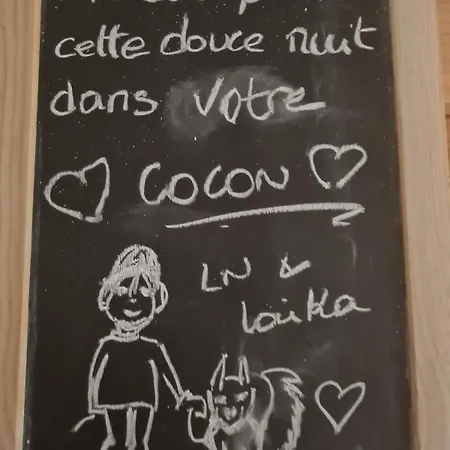 cette douce nuit
dans votre
COCON
LN &
Laïka